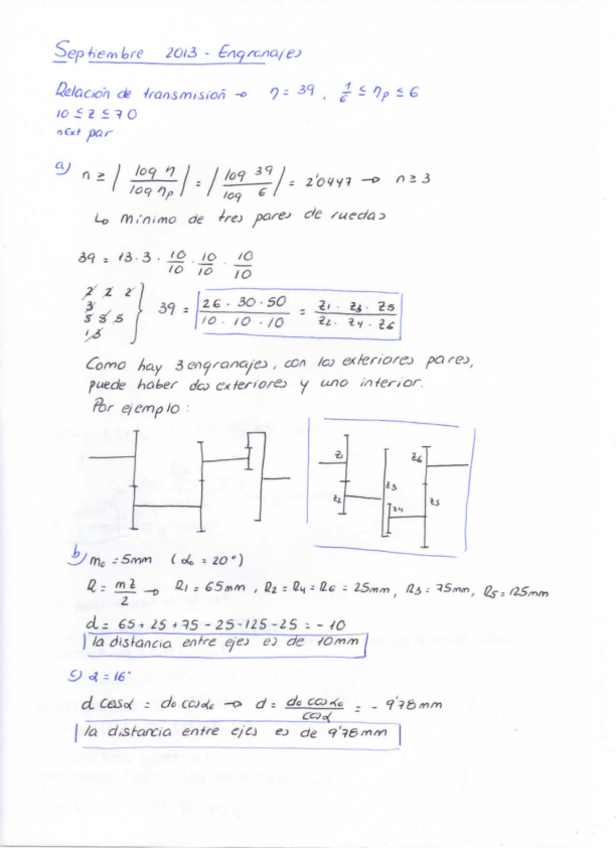 Septiembre 2013 - Engranajes
Relación de transmisión → η = 39 , 1/6 ≤ ηp ≤ 6
10 ≤ z ≤ 70
next par
a) n ≥ | log η / log ηp | = | log 39 / log 6 | = 2'0447 → n ≥ 3
↳ Mínimo de tres pares de ruedas
39 = 13 · 3 · 10/10 · 10/10 · 10/10
2 2 2
3
5 5 5
13
} 39 = 26 · 30 · 50 / 10 · 10 · 10 = z1 · z3 · z5 / z2 · z4 · z6
Como hay 3 engranajes, con los exteriores pares,
puede haber dos exteriores y uno interior.
Por ejemplo :
z1 z2 z3 z4 z5 z6
b) m0 = 5mm ( α0 = 20° )
R = mz/2 → R1 = 65mm , R2 = R4 = R6 = 25mm, R3 = 75mm, R5 = 125mm
d = 65 + 25 + 75 - 25 - 125 - 25 = - 10
la distancia entre ejes es de 10mm
c) α = 16°
d cosα = d0 cosα0 → d = d0 cosα0 / cosα = - 9'78 mm
la distancia entre ejes es de 9'78 mm